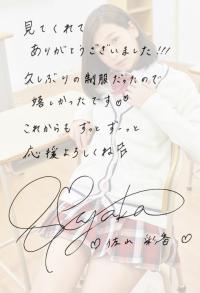 見てくれて
ありがとうございました!!!
久しぶりの制服だったので
嬉しかったです♡♡
これからも ずっと ずーっと
応援よろしくね
Sayaka
♡佐山 彩香♡